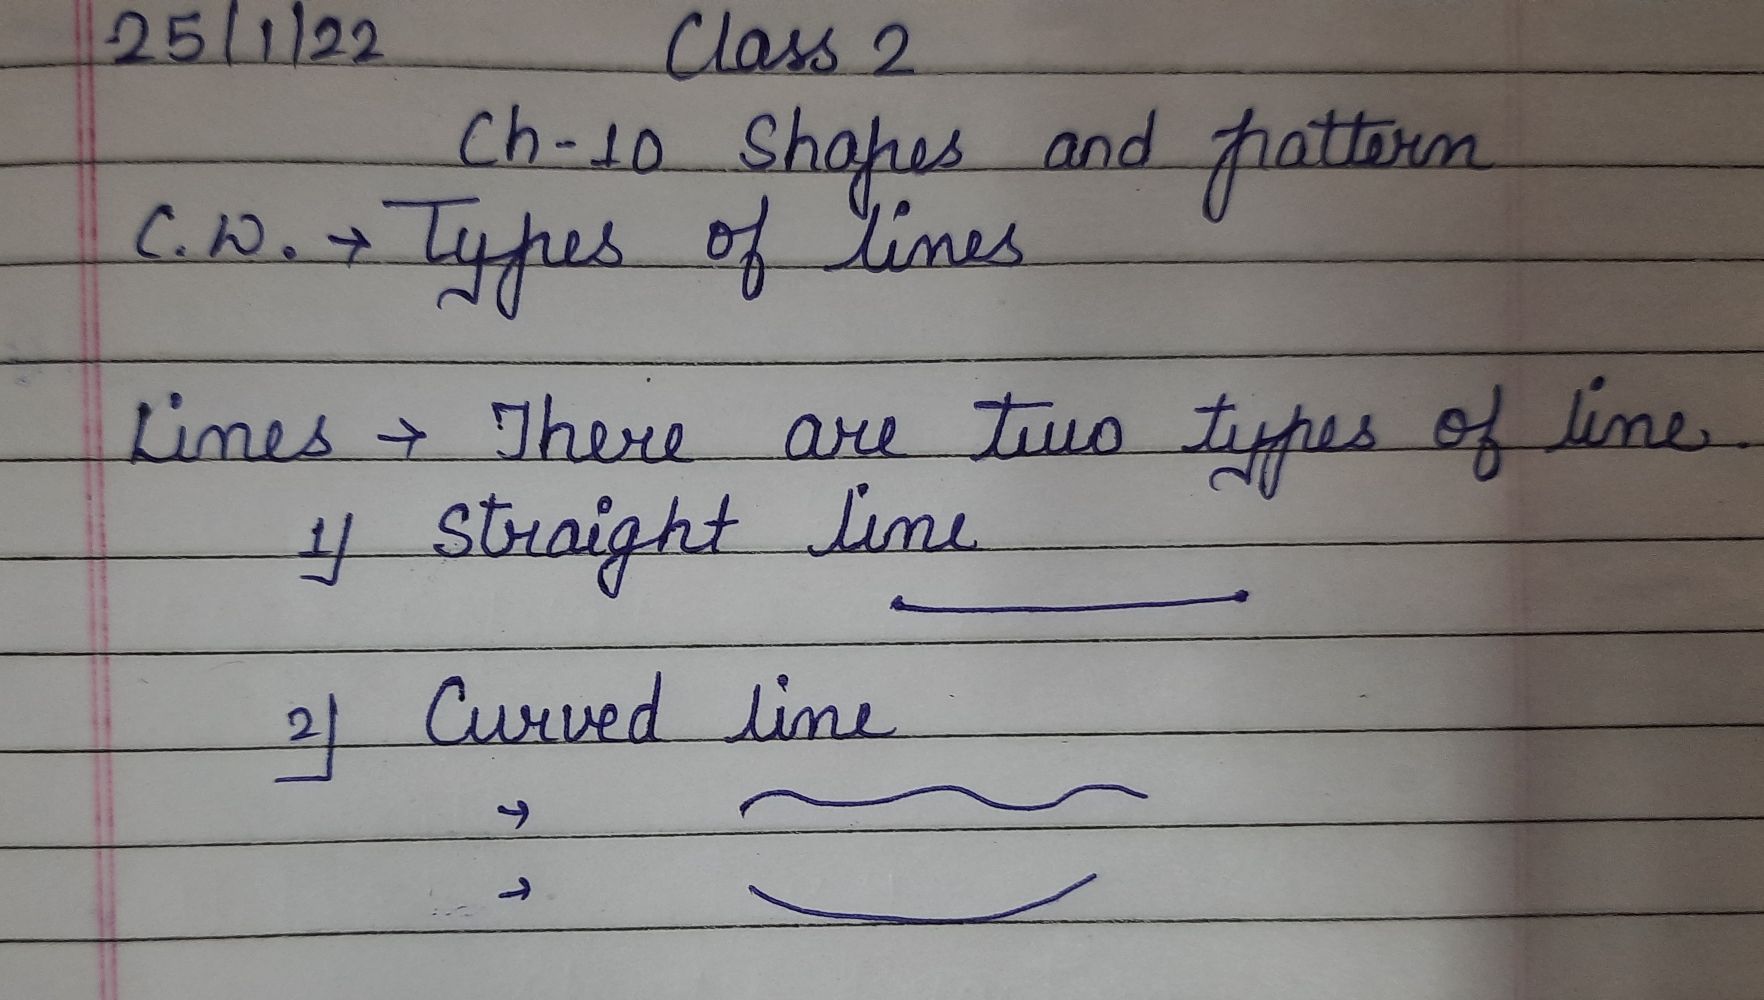 25/1/22 Class 2
Ch-10 Shapes and pattern
C.W. → Types of lines
Lines → There are two types of line.
1) Straight line
2) Curved line
→
→